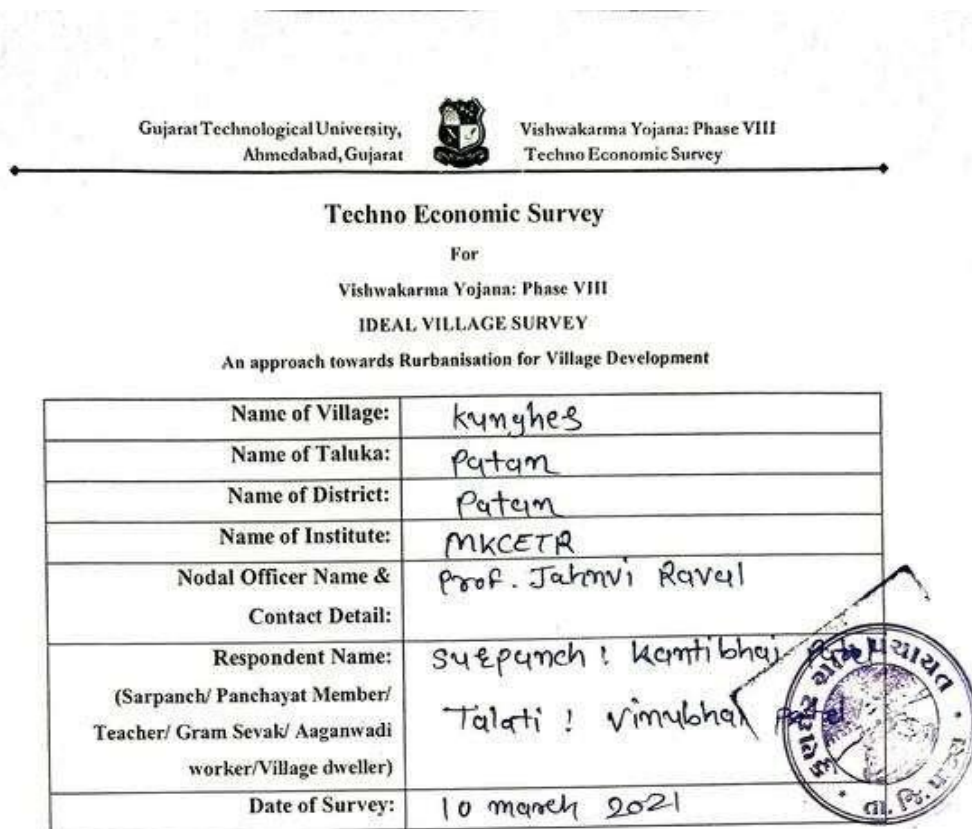 Gujarat Technological University,
Ahmedabad, Gujarat
Vishwakarma Yojana: Phase VIII
Techno Economic Survey
Techno Economic Survey
For
Vishwakarma Yojana: Phase VIII
IDEAL VILLAGE SURVEY
An approach towards Rurbanisation for Village Development
Name of Village: Kunghes
Name of Taluka: Patan
Name of District: Patan
Name of Institute: MKCETR
Nodal Officer Name & Prof. Jahnvi Raval
Contact Detail:
Respondent Name: Sarpanch : Kantibhai
(Sarpanch/ Panchayat Member/
Teacher/ Gram Sevak/ Aaganwadi Talati : Vinubhai Patel
worker/Village dweller)
Date of Survey: 10 march 2021